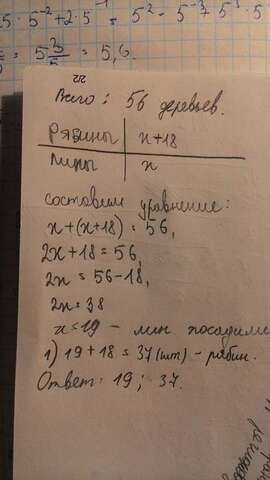 5 · 5⁻² + 2 · 5⁻¹ = 5² - 5⁻³ + 5³ · 5
= 5 3/5 = 5,6.
Всего: 56 деревьев.
Рябины | x+18
Липы | x
составим уравнение:
x+(x+18) = 56,
2x+18 = 56,
2x = 56-18,
2x = 38
x = 19 - лип посадили
1) 19+18 = 37 (шт) - рябин.
Ответ: 19; 37.